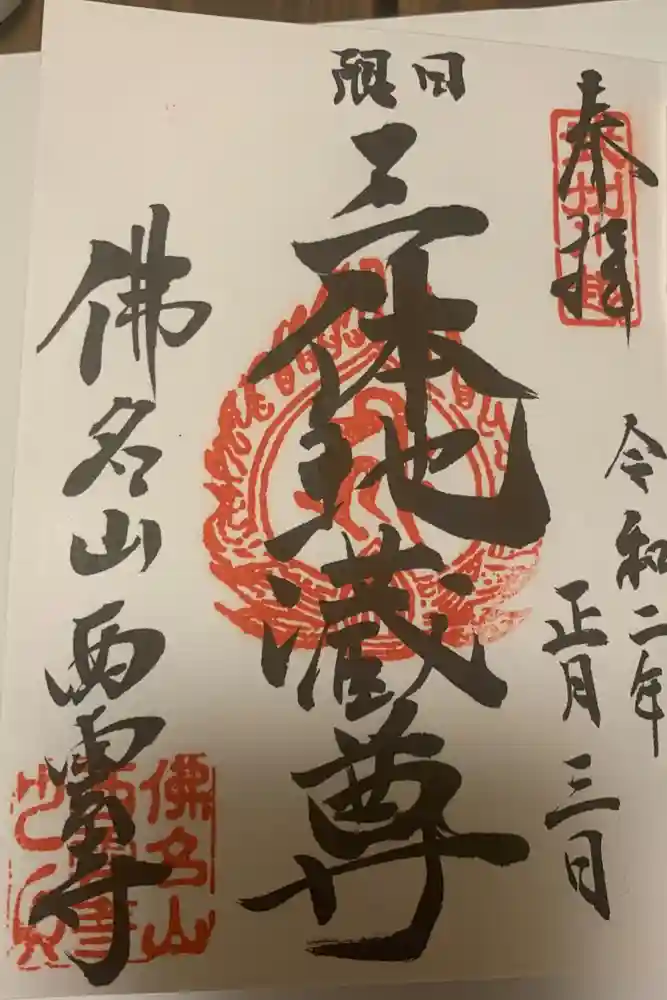 奉拝
令和二年
正月三日
日限
三体地蔵尊
佛名山西雲寺
佛名山
西雲寺